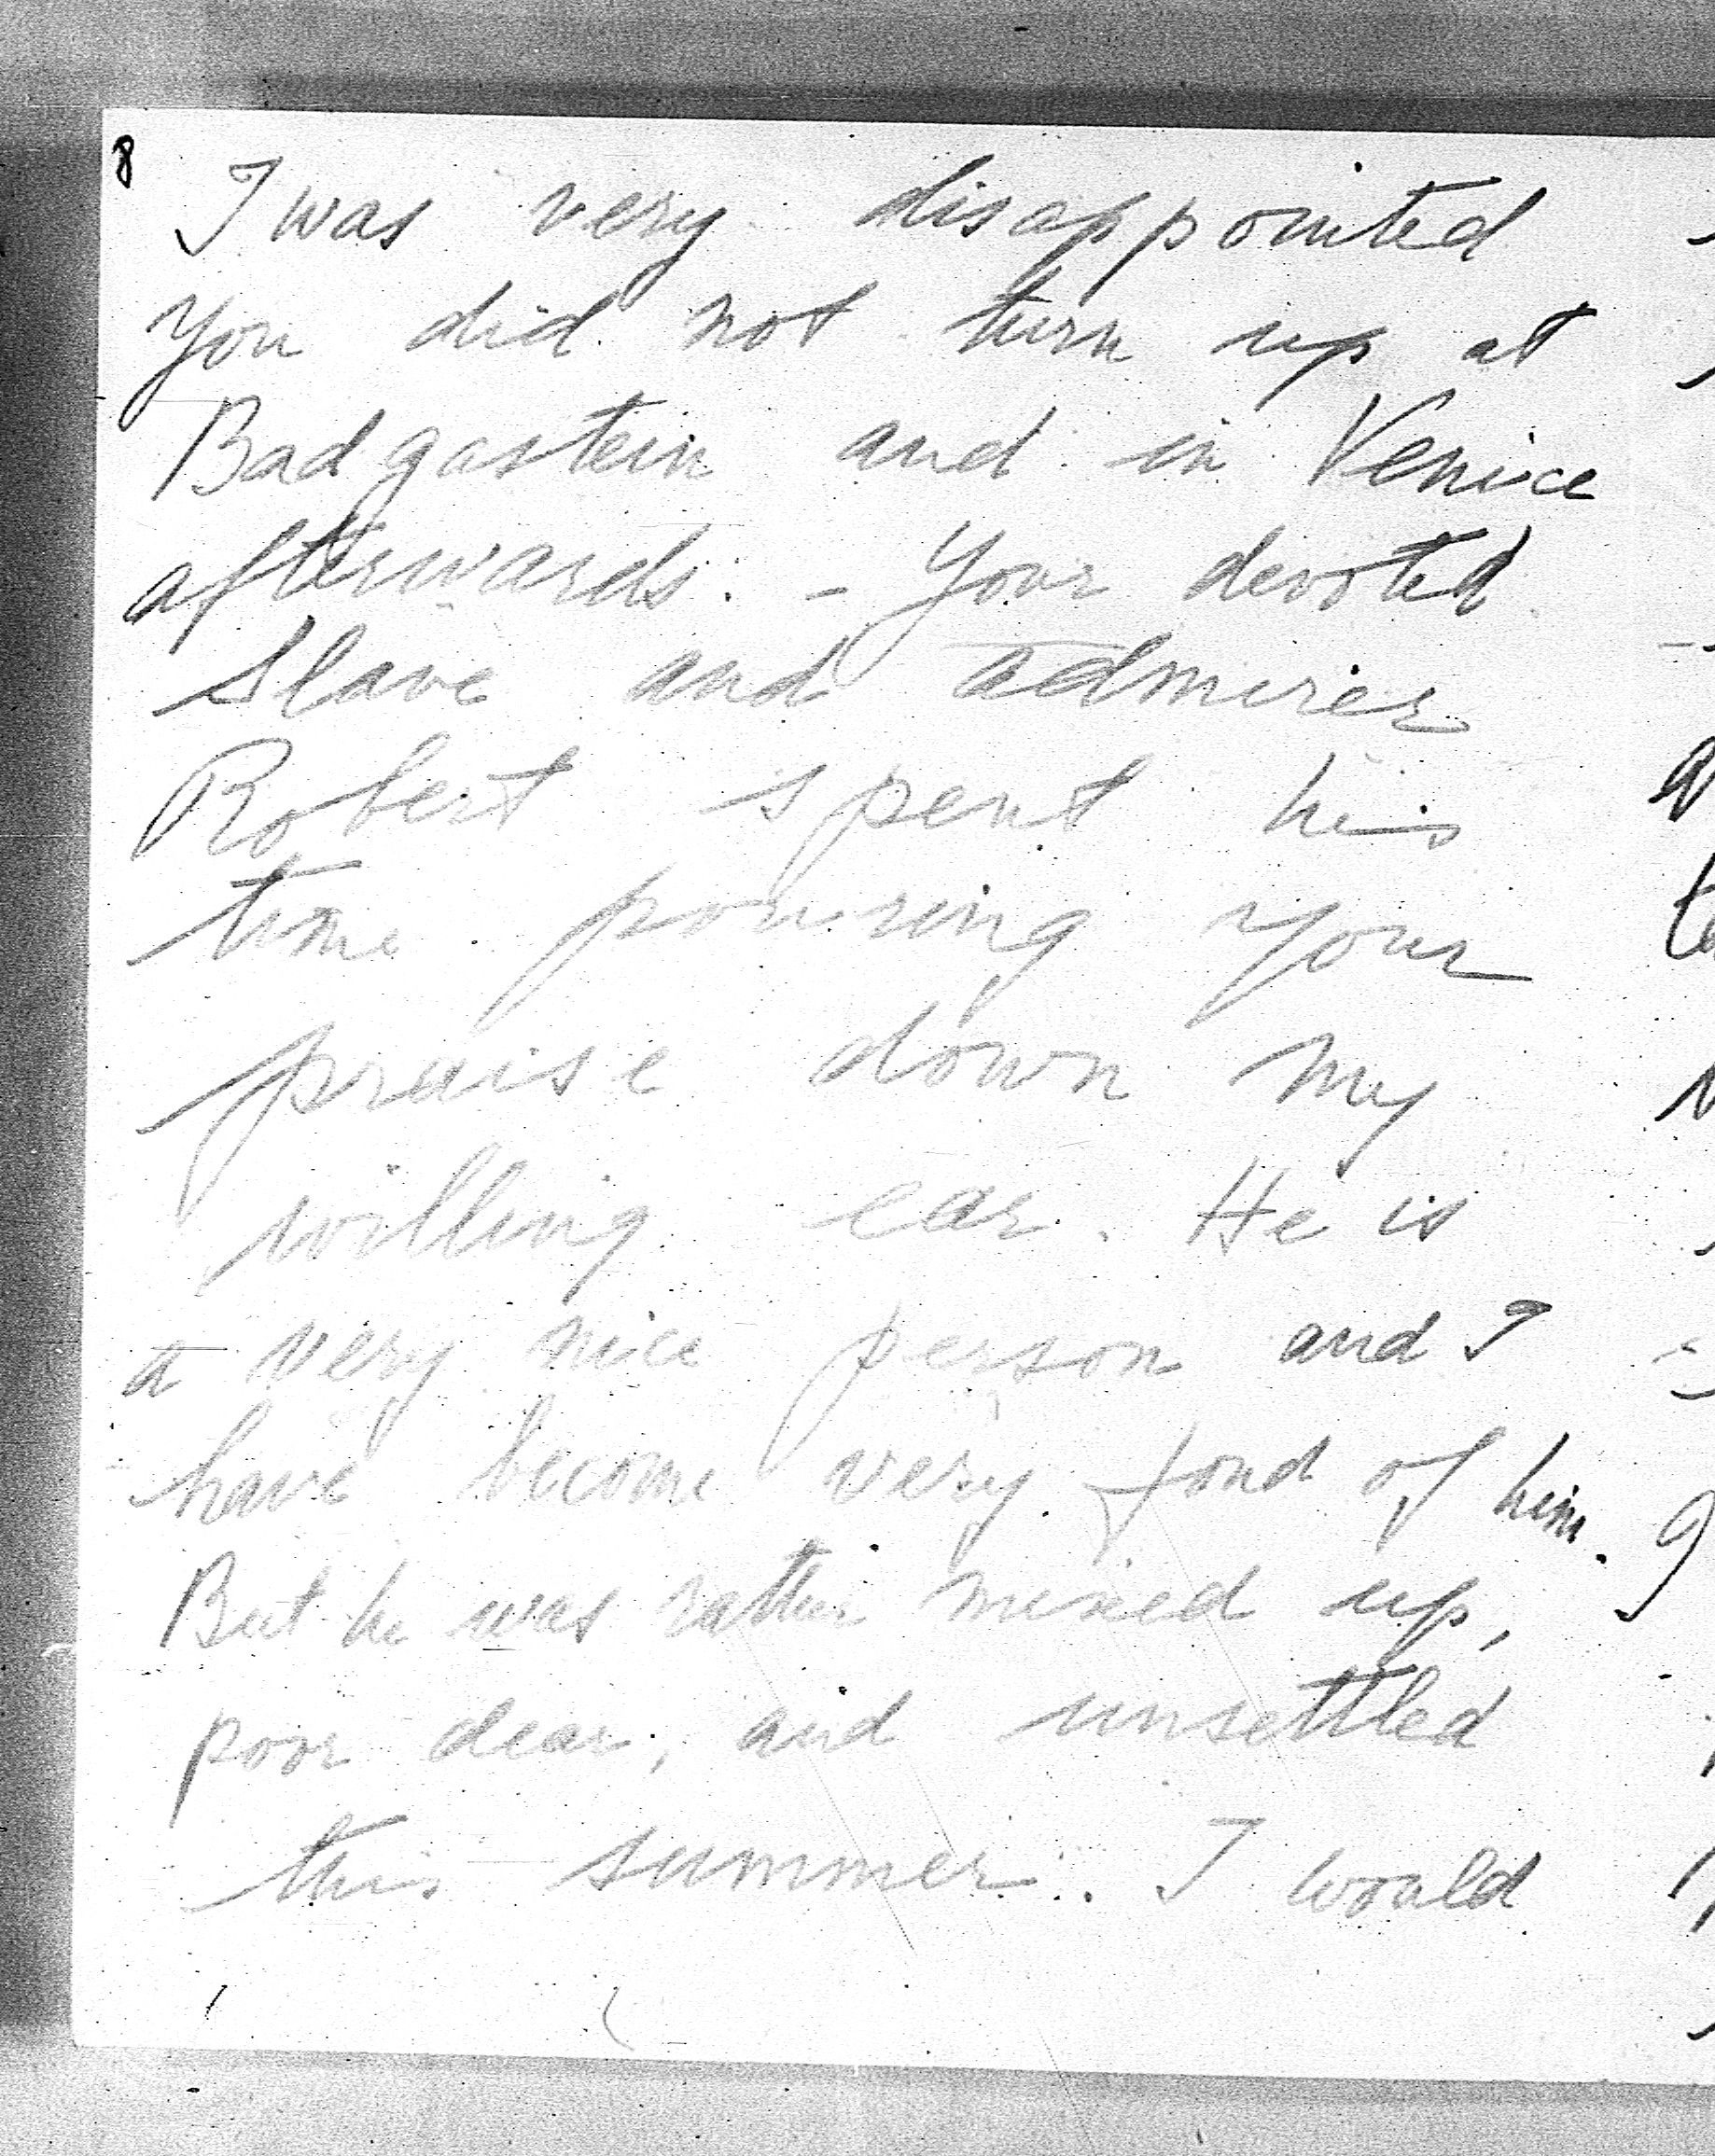 8
I was very disappointed
you did not turn up at
Badgastein and in Venice
afterwards. - Your devoted
slave and admirer
Robert spent his
time pouring your
praise down my
willing ear. He is
a very nice person and I
have become very fond of him.
But he was rather mixed up,
poor dear, and unsettled
this summer. I would